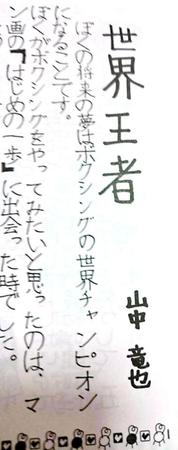 世界王者
山中 竜也
ぼくの将来の夢はボクシングの世界チャンピオン
になることです。
ぼくがボクシングをやってみたいと思ったのは、マ
ン画の『はじめの一歩』に出会った時でした。